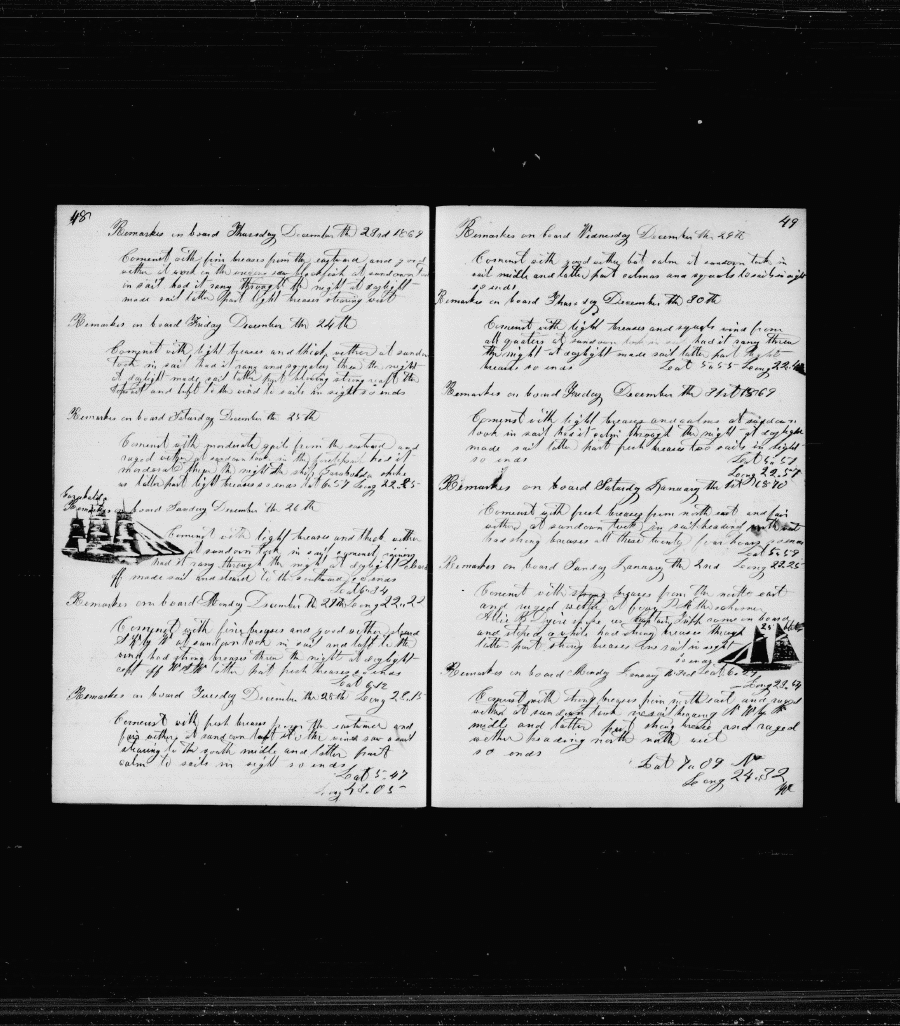 48
Remarkes on board Thursday December th 23rd 1869
Comenct with fine breases from the eastward and good
wether at sundown
in sail had it rany through the night at daylight
made sail latter part light breases stering west
Remarkes on board Friday December th 24th
Comenct with light breases and thick wether at sundow
took in sail had it rany and squaley threw the night
at daylight made sail latter part blowing strong
and kept to the wind no sails in sight so ends
Remarkes on board Saturday December th 25th
Comenct with moderate gails from the eastward and
ruged wether at sundown took in the foretopsail had it
moderate threw the night the ship Garabaldia spoke
us latter part light breases so ends Lat 6.57 Long 22.25
Garabaldia
Remarkes on board Sunday December th 26th
Comenct with light breases and thick wether
at sundown took in sail
had it rany through the night at daylight
made sail and steared to the southward so ends
Lat 6.34
Remarkes on board Monday December th 27th Long 22.22
Comenct with fine breases and good wether steard
S W by W at sundown took in sail and luft to the
wind had strong breases threw the night at daylight
kept off W S W latter part fresh breases so ends
Lat 6.12
Remarkes on board Tuesday December th 28th Long 22.15
Comenct with fresh breases from the eastward and
fair wether at sundown luft to the wind saw a sail
stearing to the south midle and latter part
calm no sails in sight so ends
Lat 5.47
49
Remarkes on board Wednesday December th 29th
Comenct with good wether but calm at sundown took in
sail midle and latter part calmes and squals no sails in sight
so ends
Remarkes on board Thursday December th 30th
Comenct with light breases and squals wind from
all quaters at sundown took in sail had it rany threw
the night at daylight made sail latter part light
breases so ends Lat 5.55 Long 22.4
Remarkes on board Friday December th 31st 1869
Comenct with light breases and calms at sundown
took in sail had it calm through the night at daylight
made sail latter part fresh breases two sails in sight
so ends Lat 5.51
Long 22.57
Remarkes on board Saturday January th 1st 1870
Comenct with fresh breases from north east and fair
wether at sundown took in sail heading north
had strong breases all these twenty four hours so ends
Lat 5.59
Remarkes on board Sunday January th 2nd Long 22.25
Comenct with strong breases from the north east
and ruged wether at the schooner
spoke us Captain came on board
and stoped a while had strong breases through
latter part strong breases one sail in sight
so ends
Remarkes on board Monday January th 3rd Lat 6.27
Long 23.54
Comenct with strong breases from north east and ruged
wether at sundown took in sail heading N W by W
midle and latter part strong breases and ruged
wether heading north north west
so ends
Lat 7.09 N
Long 24.32
W